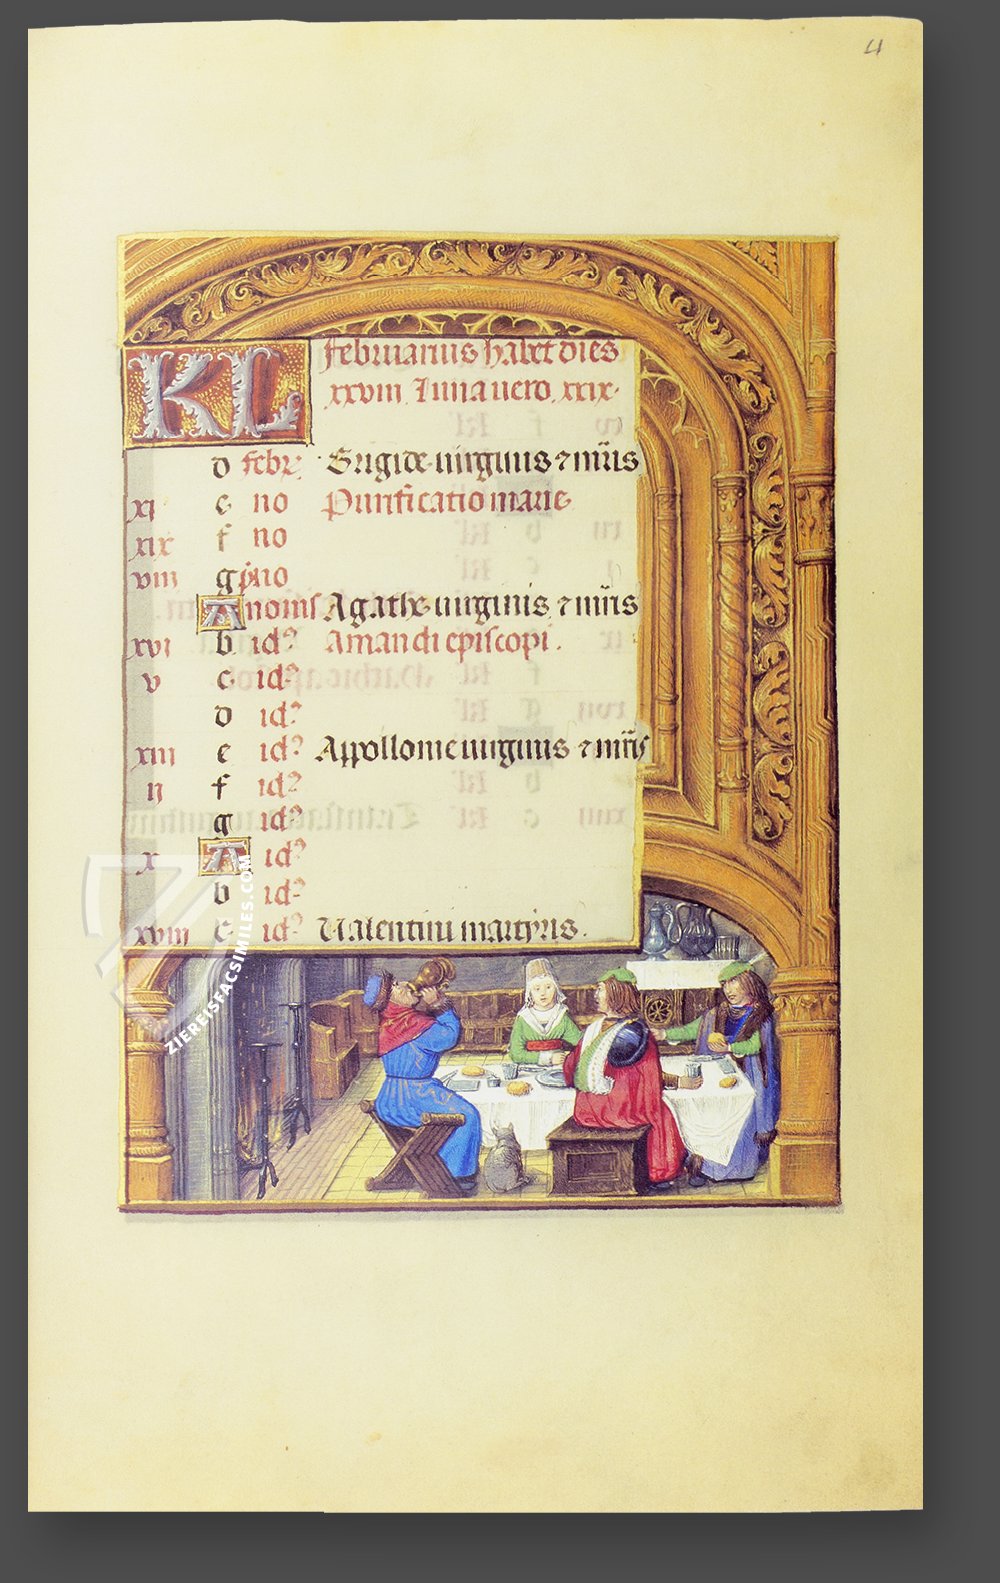 4
KL Februarius habet dies
xxviii. Luna vero. xxix.
d febr. Brigide virginis ⁊ mr̄is
xi e no Purificatio marie
xix f no
viii g p̄no
A nonis Agathe virginis ⁊ mr̄is
xvi b idꝰ Amandi episcopi.
v c idꝰ
d idꝰ
xiii e idꝰ Appollonie virginis ⁊ mr̄is
ii f idꝰ
g idꝰ
x A idꝰ
b idꝰ
xviii c idꝰ Valentini martyris.
ZIEREISFACSIMILES.COM